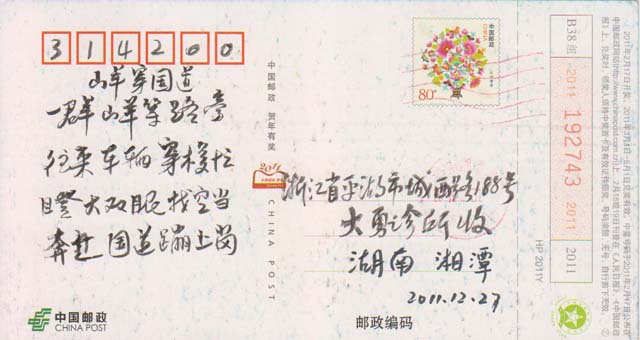 314200
山羊穿国道
一群山羊等路旁
往来车辆穿梭忙
瞪大双眼找空当
奔赴国道蹦上岗
中国邮政 贺年有奖
2011
CHINA POST
中国邮政
CHINA
80分
浙江省平湖市城西路188号
大勇诊所收
湖南 湘潭
2011.12.27
中国邮政
CHINA POST
邮政编码
HP 2011Y
B38组
2011
192743
2011
2011
2011年2月17日开奖。